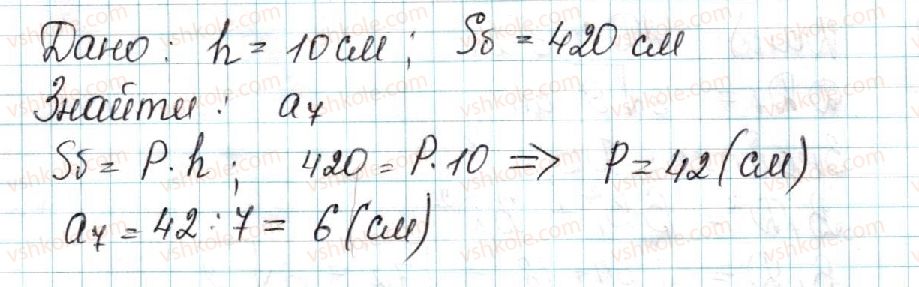 Дано: h = 10 см; Sб = 420 см
Знайти: a₇
Sб = P·h; 420 = P·10 => P = 42 (см)
a₇ = 42 : 7 = 6 (см)